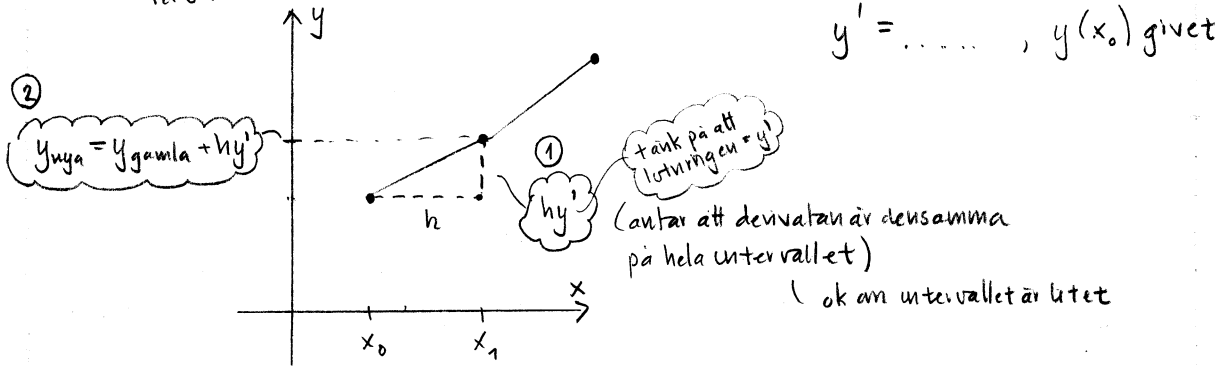 y
y' = ..... , y(x₀) givet
②
y_nya = y_gamla + hy'
①
tänk på att
lutningen = y'
h
hy'
(antar att derivatan är densamma
på hela intervallet)
ok om intervallet är litet
x
x₀
x₁